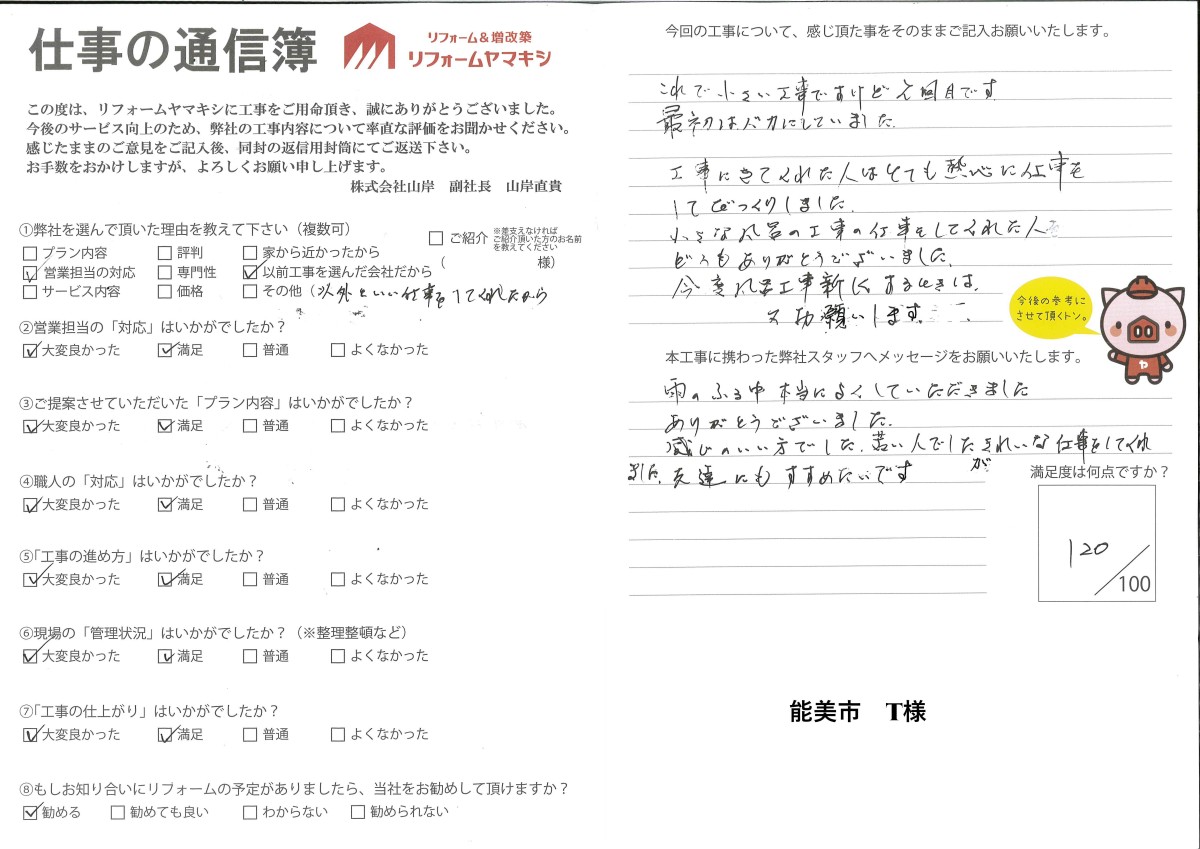 仕事の通信簿
リフォーム&増改築
リフォームヤマキシ
この度は、リフォームヤマキシに工事をご用命頂き、誠にありがとうございました。
今後のサービス向上のため、弊社の工事内容について率直な評価をお聞かせください。
感じたままのご意見をご記入後、同封の返信用封筒にてご返送下さい。
お手数をおかけしますが、よろしくお願い申し上げます。
株式会社山岸 副社長 山岸直貴
①弊社を選んで頂いた理由を教えて下さい（複数可）
□ プラン内容 □ 評判 □ 家から近かったから □ ご紹介 ※差支えなければ
ご紹介頂いた方のお名前
を教えてください
☑ 営業担当の対応 □ 専門性 ☑ 以前工事を選んだ会社だから （ 様）
□ サービス内容 □ 価格 □ その他（以外といい仕事をしてくれたから
②営業担当の「対応」はいかがでしたか？
☑ 大変良かった ☑ 満足 □ 普通 □ よくなかった
③ご提案させていただいた「プラン内容」はいかがでしたか？
☑ 大変良かった ☑ 満足 □ 普通 □ よくなかった
④職人の「対応」はいかがでしたか？
☑ 大変良かった ☑ 満足 □ 普通 □ よくなかった
⑤「工事の進め方」はいかがでしたか？
☑ 大変良かった ☑ 満足 □ 普通 □ よくなかった
⑥現場の「管理状況」はいかがでしたか？（※整理整頓など）
☑ 大変良かった ☑ 満足 □ 普通 □ よくなかった
⑦「工事の仕上がり」はいかがでしたか？
☑ 大変良かった ☑ 満足 □ 普通 □ よくなかった
⑧もしお知り合いにリフォームの予定がありましたら、当社をお勧めして頂けますか？
☑ 勧める □ 勧めても良い □ わからない □ 勧められない
今回の工事について、感じ頂た事をそのままご記入お願いいたします。
これで小さい工事ですけど 回目です
最初はバカにしていました.
工事にきてくれた人はとても熱心に仕事を
してびっくりしました.
小さな風呂の工事の仕事をしてくれた人
どうもありがとうございました.
今度風呂工事新しくするときは、
又お願いします.
今後の参考に
させて頂くトン。
ヤ
本工事に携わった弊社スタッフへメッセージをお願いいたします。
雨のふる中本当によくしていただきました
ありがとうございました.
感じのいい方でした.若い人でしたがきれいな仕事をしてくれ
ました.友達にもすすめたいです
満足度は何点ですか？
120
/100
能美市 T様